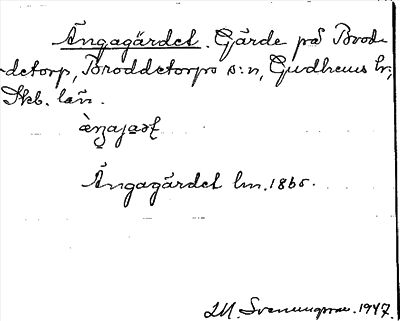 Ängagärdet. Gärde på Brod-
detorp, Broddetorps s:n, Gudhems hr;
Skb. län.
Ängagärdet lm. 1865.
M. 1947.